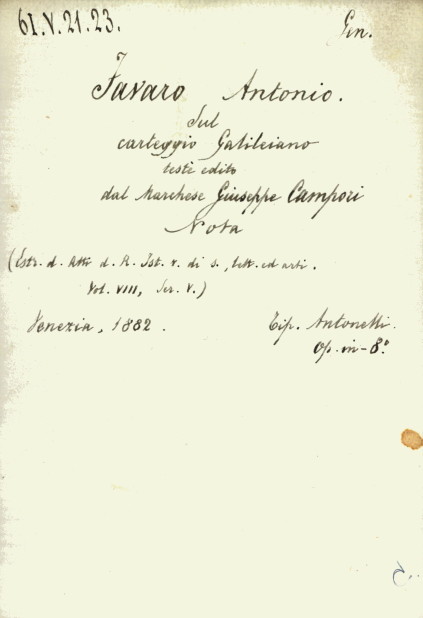 61.V.21.23.
Gen.
Favaro Antonio.
Sul
carteggio Galileiano
testè edito
dal Marchese Giuseppe Campori
Nota
(Estr. d. Atti d. R. Ist. v. di s., lett. ed arti.
Vol. VIII, Ser. V.)
Venezia, 1882.
Tip. Antonelli.
Op. in-8.º